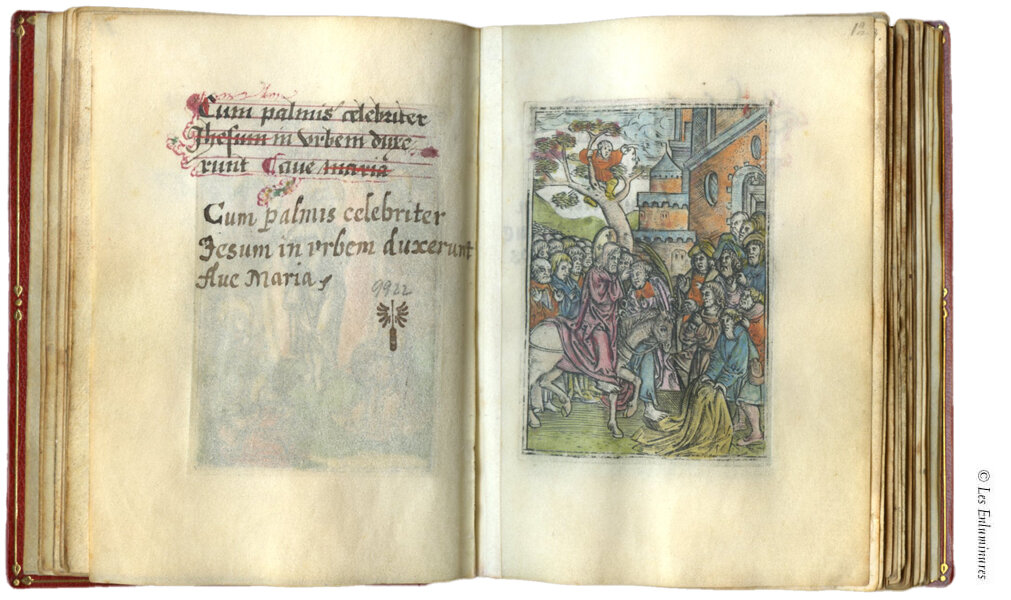 Cum palmis celebriter
Jhesum in vrbem dux̄e
runt Caue maria
Cum palmis celebriter
Jesum in vrbem duxerunt
Aue Maria
9922
© Les Enluminures